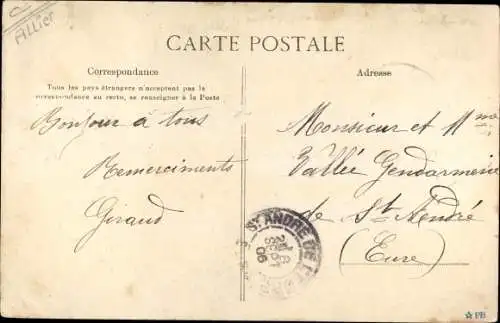 Allier
CARTE POSTALE
Correspondance
Tous les pays étrangers n'acceptent pas la
correspondance au recto, se renseigner à la Poste
Bonjour à tous
Remerciments
Giraud
Adresse
Monsieur et Mme
Vallée Gendarmerie
de St André
(Eure)
ST ANDRÉ DE L'EURE
06
PB